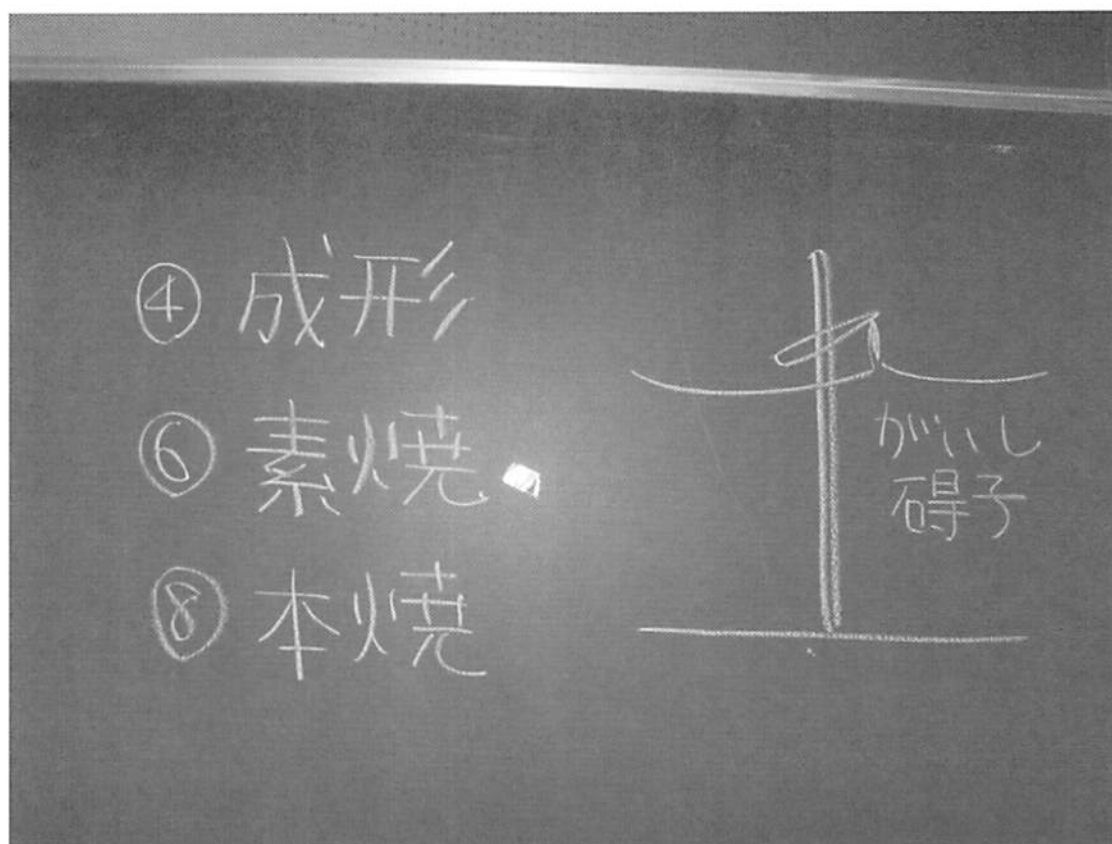 ④ 成形
⑥ 素焼
⑧ 本焼
がいし
碍子